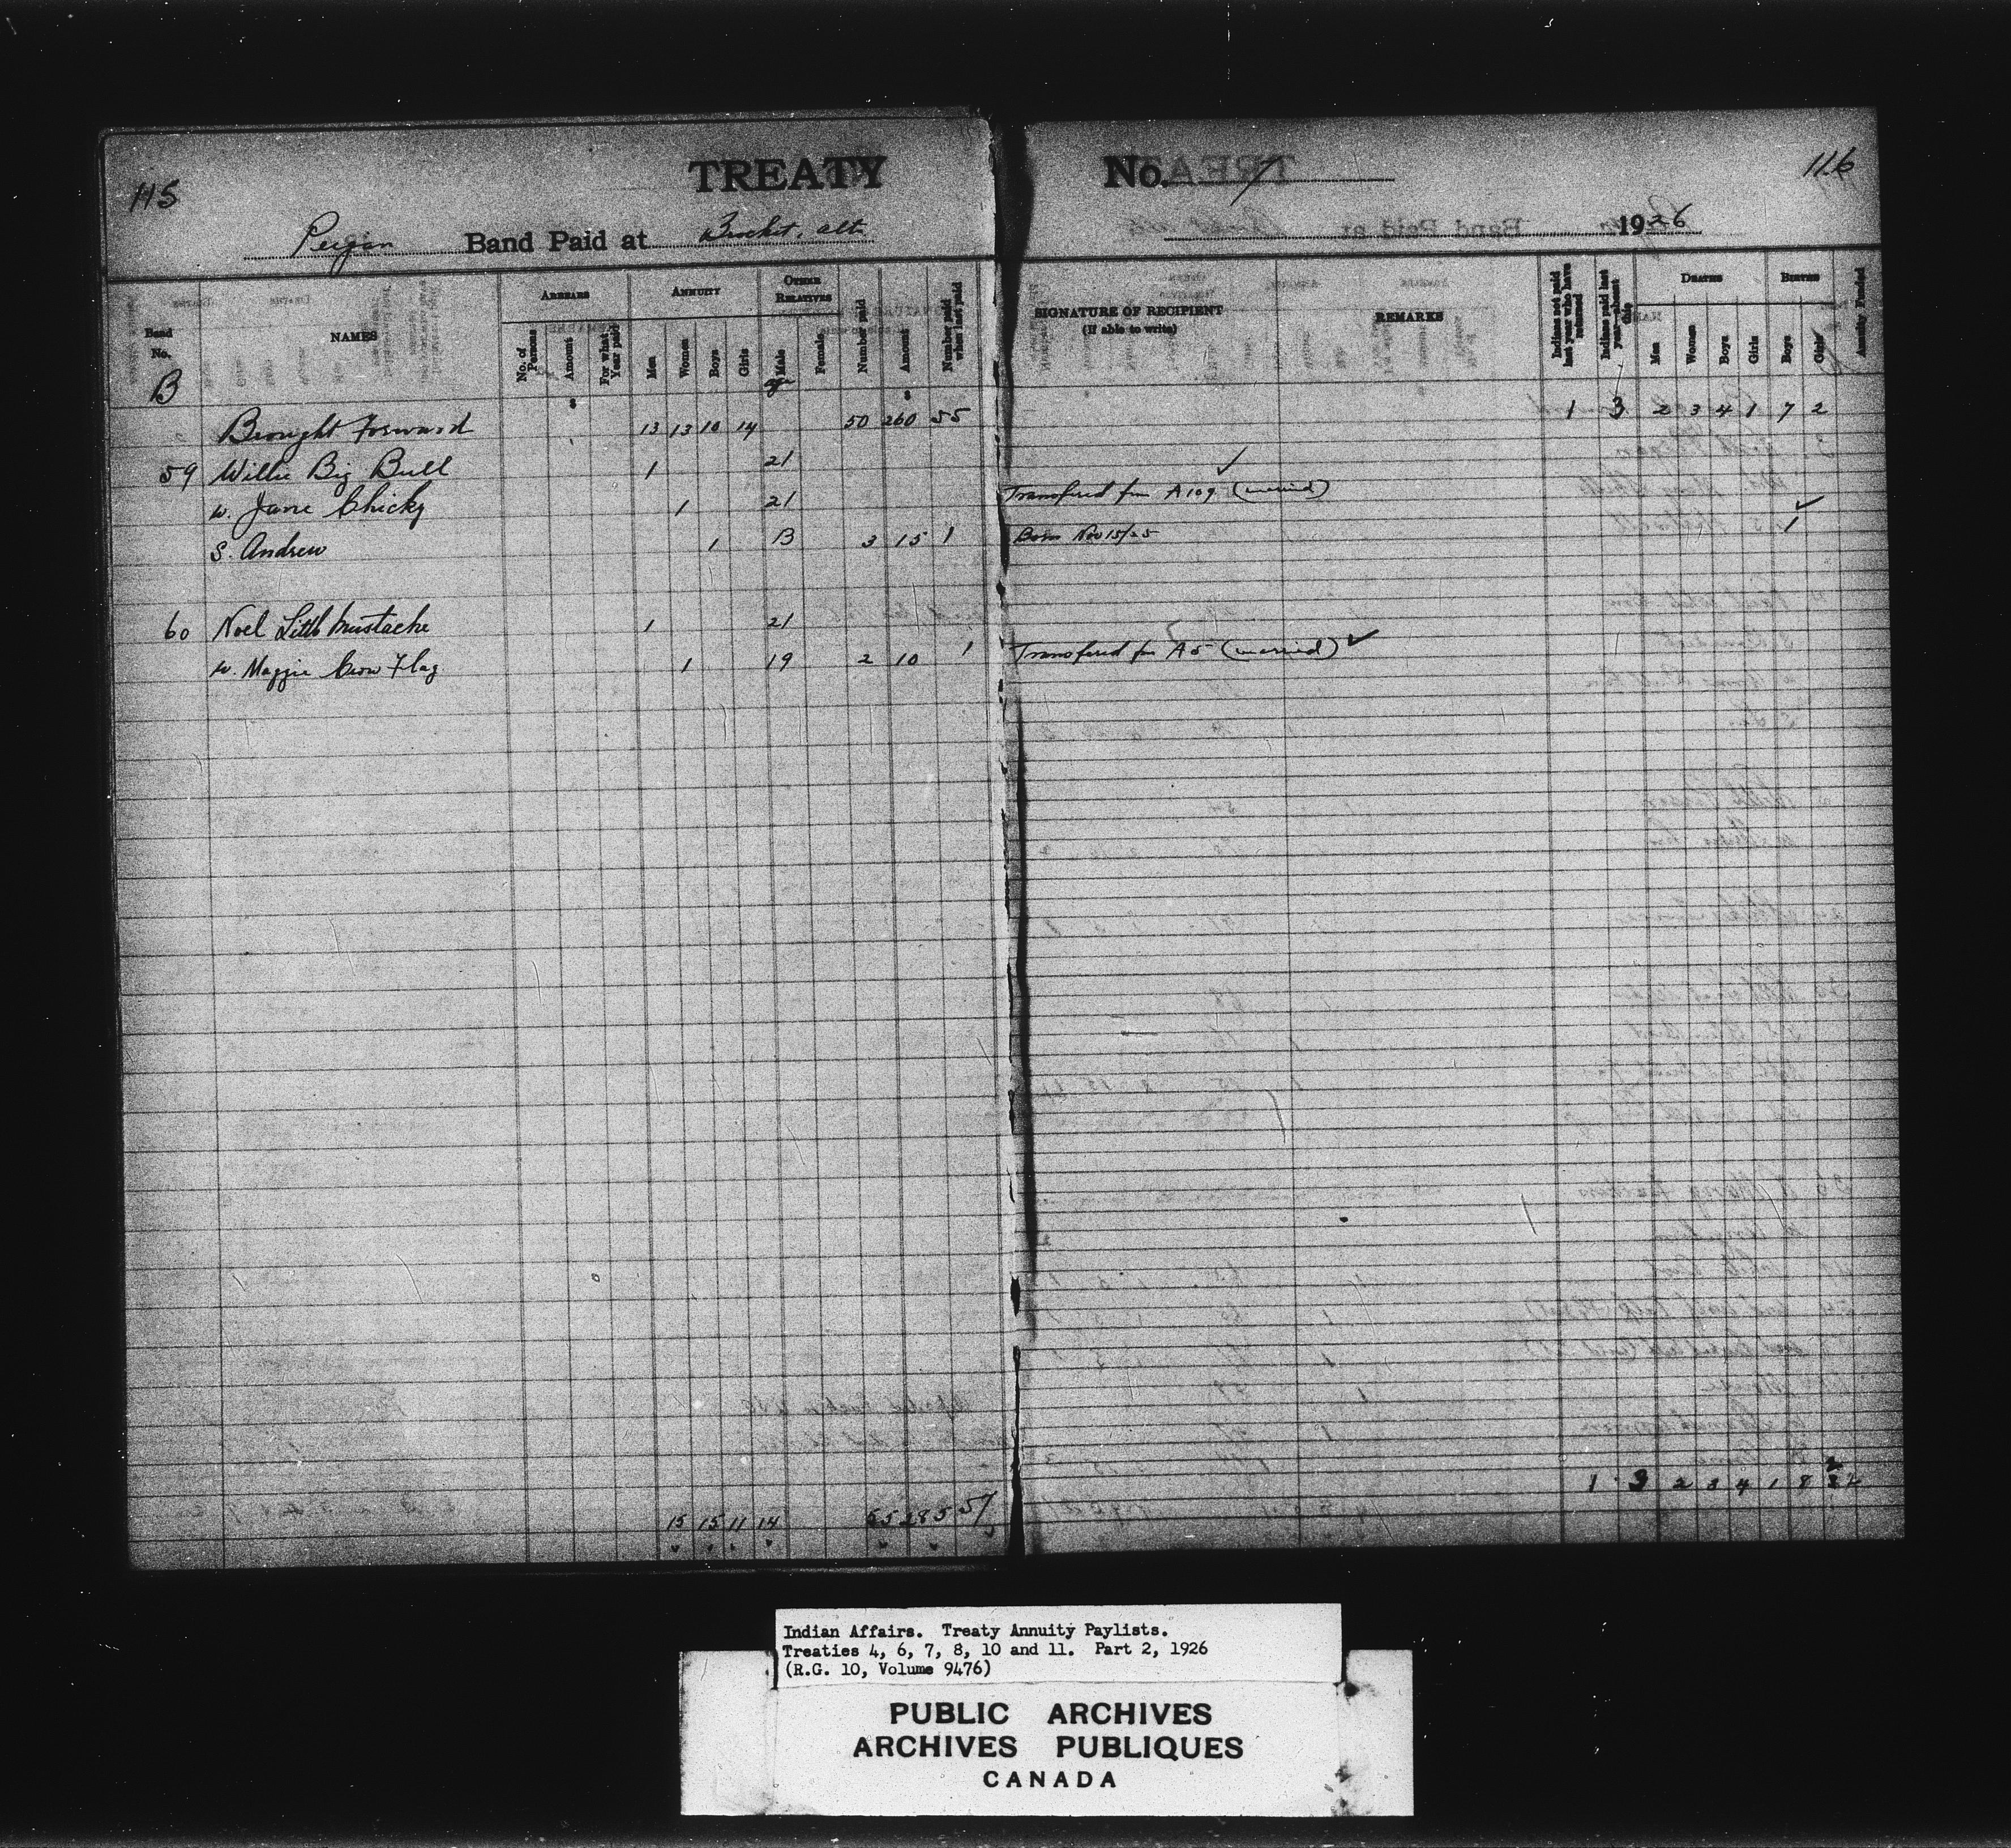 115
TREATY No. 7
116
Peigan Band Paid at Brocket, Alta 1926
Band No.
NAMES
ARREARS
No. of Persons
Amount
For what Year paid
ANNUITY
Men
Women
Boys
Girls
OTHER RELATIVES
Male
Female
Number paid
Amount
Number paid when last paid
SIGNATURE OF RECIPIENT
(If able to write)
REMARKS
Indians not paid last year who have returned
Indians paid last year—absent this
DEATHS
Men
Women
Boys
Girls
BIRTHS
Boys
Girls
Annuity Funded
B
age
$ $
Brought Forward 13 13 10 14 50 260 55 1 3 2 3 4 1 7 2
59 Willie Big Bull 1 21 ✓
w. Jane Chicky 1 21 Transfered from A 109 (married)
S. Andrew 1 B 3 15 1 Born Nov 15/25 1 ✓
60 Noel Little Mustache 1 21
w. Maggie Crow Flag 1 19 2 10 1 Transfered from A 5 (married) ✓
15 15 11 14 55 285 57 1 3 2 3 4 1 8 2
Indian Affairs. Treaty Annuity Paylists.
Treaties 4, 6, 7, 8, 10 and 11. Part 2, 1926
(R.G. 10, Volume 9476)
PUBLIC ARCHIVES
ARCHIVES PUBLIQUES
CANADA